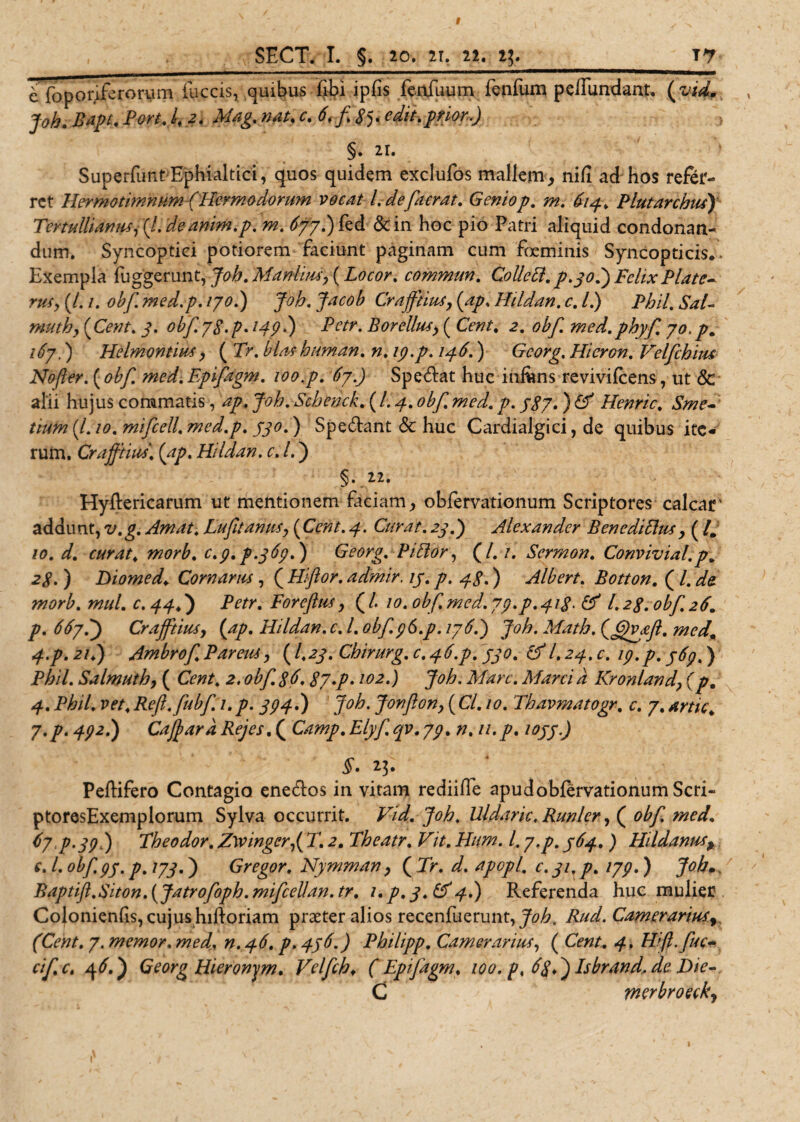 SECT. I. §. 20. 21. 22. 23. 17
è soporiferorum succis, quibus sibi ipsis sensuum sensum pessundant. (vid.
Joh. Bapt. Port. l. 2. Mag. nat. c. 6. f. 85. edit. prior.)
§. 21.
Supersunt Ephialtici, quos quidem exclusos mallem, nisi ad hos refer-
ret Hermotimnum (Hermodorum vocat l. de sacrat. Genio p. m. 614. Plutarchus)
Tertullianus, (l. de anim. p. m. 677.) sed & in hoc pio Patri aliquid condonan-
dum. Syncoptici potiorem faciunt paginam cum fœminis Syncopticis.
Exempla suggerunt, Joh. Manlius, (Locor. commun. Collect. p. 30.) Felix Plate-
rus, (l. 1. obs. med. p. 170.) Joh. Jacob Crafftius, (ap. Hildan. c. l.) Phil. Sal-
muth, (Cent. 3. obs. 78. p. 149.) Petr. Borellus, (Cent. 2. obs. med. phys. 70. p.
167.) Helmontius, (Tr. blas human. n. 19. p. 146.) Georg. Hieron. Velschius
Noster. (obs. med. Episagm. 100. p. 67.) Spectat huc infans reviviscens, ut &
alii hujus commatis, ap. Joh. Schenck. (l. 4. obs. med. p. 587.) & Henric. Sme-
tium (l. 10. miscell. med. p. 530.) Spectant & huc Cardialgici, de quibus ite-
rum. Crafftius. (ap. Hildan. c. l.)
§. 22.
Hystericarum ut mentionem faciam, observationum Scriptores calcar
addunt, v. g. Amat. Lusitanus, (Cent. 4. Curat. 23.) Alexander Benedictus, (l.
10. d. curat. morb. c. 9. p. 369.) Georg. Pictor, (l. 1. Sermon. Convivial. p.
28.) Diomed. Cornarus, (Histor. admir. 15. p. 48.) Albert. Botton. (l. de
morb. mul. c. 44.) Petr. Forestus, (l. 10. obs. med. 79. p. 418. & l. 28. obs. 26.
p. 667.) Crafftius, (ap. Hildan. c. l. obs. 96. p. 176.) Joh. Math. (Quæst. med.
4. p. 21.) Ambros. Pareus, (l. 23. Chirurg. c. 46. p. 530. & l. 24. c. 19. p. 569.)
Phil. Salmuth, (Cent. 2. obs. 86. 87. p. 102.) Joh. Marc. Marci à Kronland, (p.
4. Phil. vet. Rest. subs. 1. p. 394.) Joh. Jonston, (Cl. 10. Thavmatogr. c. 7. artic.
7. p. 492.) Caspar à Rejes. (Camp. Elys. qv. 79. n. 11. p. 1055.)
§. 23.
Pestifero Contagio enectos in vitam rediisse apud observationum Scri-
ptores Exemplorum Sylva occurrit. Vid. Joh. Uldaric. Runler, (obs. med.
67 p. 39.) Theodor. Zwinger, (T. 2. Theatr. Vit. Hum. l. 7. p. 564.) Hildanus,
c. l. obs. 95. p. 173.) Gregor. Nymman, (Tr. d. apopl. c. 31. p. 179.) Joh.
Baptist. Siton. (Jatrosoph. miscellan. tr. 1. p. 3. & 4.) Referenda huc mulier
Coloniensis, cujus historiam præter alios recensuerunt, Joh. Rud. Camerarius,
(Cent. 7. memor. med. n. 46. p. 456.) Philipp. Camerarius, (Cent. 4. Hist. suc-
cis. c. 46.) Georg Hieronym. Velsch. (Episagm. 100. p. 68.) Isbrand. de Die-
C merbroeck,